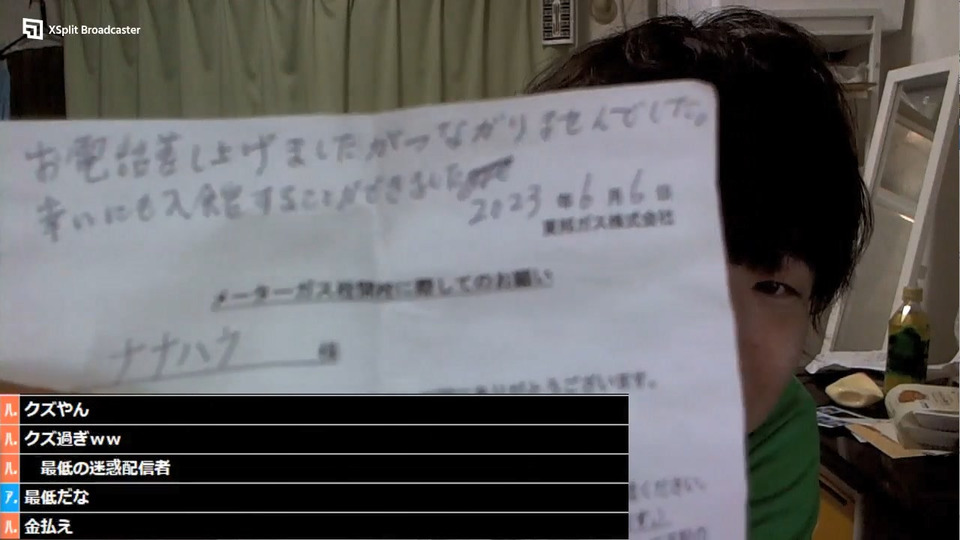 XSplit Broadcaster
お電話差し上げましたがつながりませんでした。
幸いにも入館することができました
2023年6月6日
東邦ガス株式会社
メーターガス栓開栓に際してのお願い
ナナハウ 様
ありがとうございます。
ください。
クズやん
クズ過ぎww
最低の迷惑配信者
ア. 最低だな
金払え